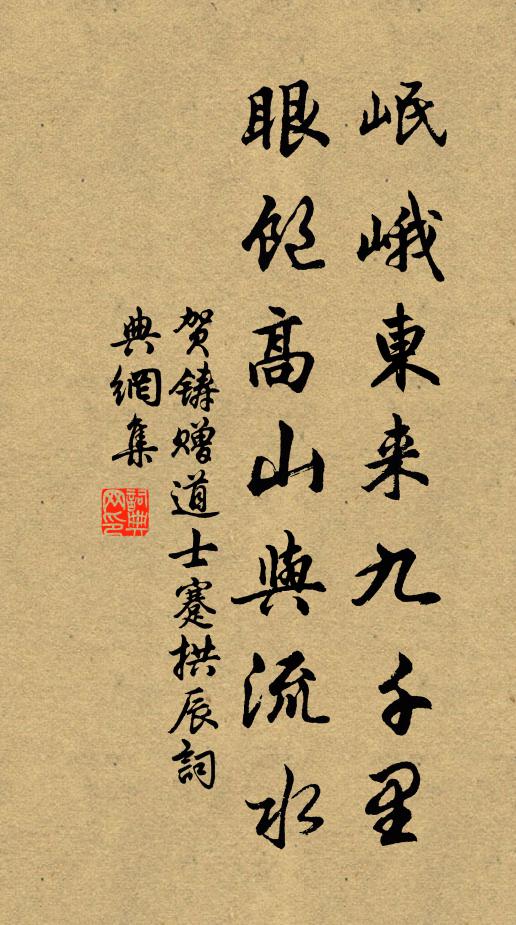 岷峨東来九千里
眼飽高山與流水
贺鑄贈道士蹇拱辰詞
典網集
詞典網印